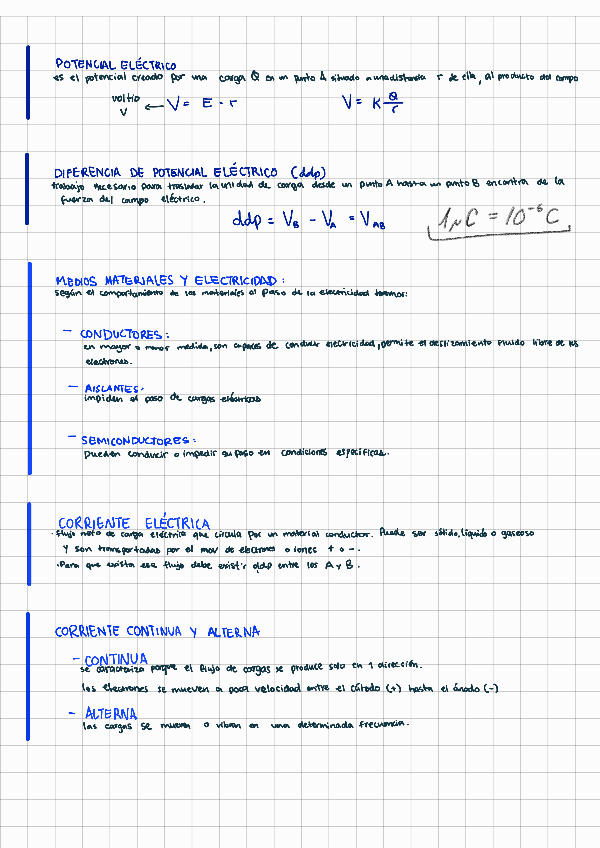 POTENCIAL ELÉCTRICO
es el potencial creado por una carga Q en un punto A situado a una distancia r de ella, al producto del campo
voltio
V ← V = E · r
V = K Q/r
DIFERENCIA DE POTENCIAL ELÉCTRICO (ddp)
trabajo necesario para trasladar la unidad de carga desde un punto A hasta un punto B encontra de la
fuerza del campo eléctrico.
ddp = VB - VA = VAB
1μC = 10⁻⁶ C
MEDIOS MATERIALES Y ELECTRICIDAD:
según el comportamiento de los materiales al paso de la electricidad tenemos:
- CONDUCTORES:
en mayor o menor medida, son capaces de conducir electricidad, permite el deslizamiento fluido libre de los
electrones.
- AISLANTES:
impiden el paso de cargas eléctricas
- SEMICONDUCTORES:
pueden conducir o impedir su paso en condiciones específicas.
CORRIENTE ELÉCTRICA
· flujo neto de carga eléctrica que circula por un material conductor. Puede ser sólido, líquido o gaseoso
y son transportadas por el mov de electrones o iones + o -.
· Para que exista ese flujo debe existir ddp entre los A y B.
CORRIENTE CONTINUA Y ALTERNA
- CONTINUA
se caracteriza porque el flujo de cargas se produce solo en 1 dirección.
los electrones se mueven a poca velocidad entre el cátodo (+) hasta el ánodo (-)
- ALTERNA
las cargas se mueven o vibran en una determinada frecuencia.